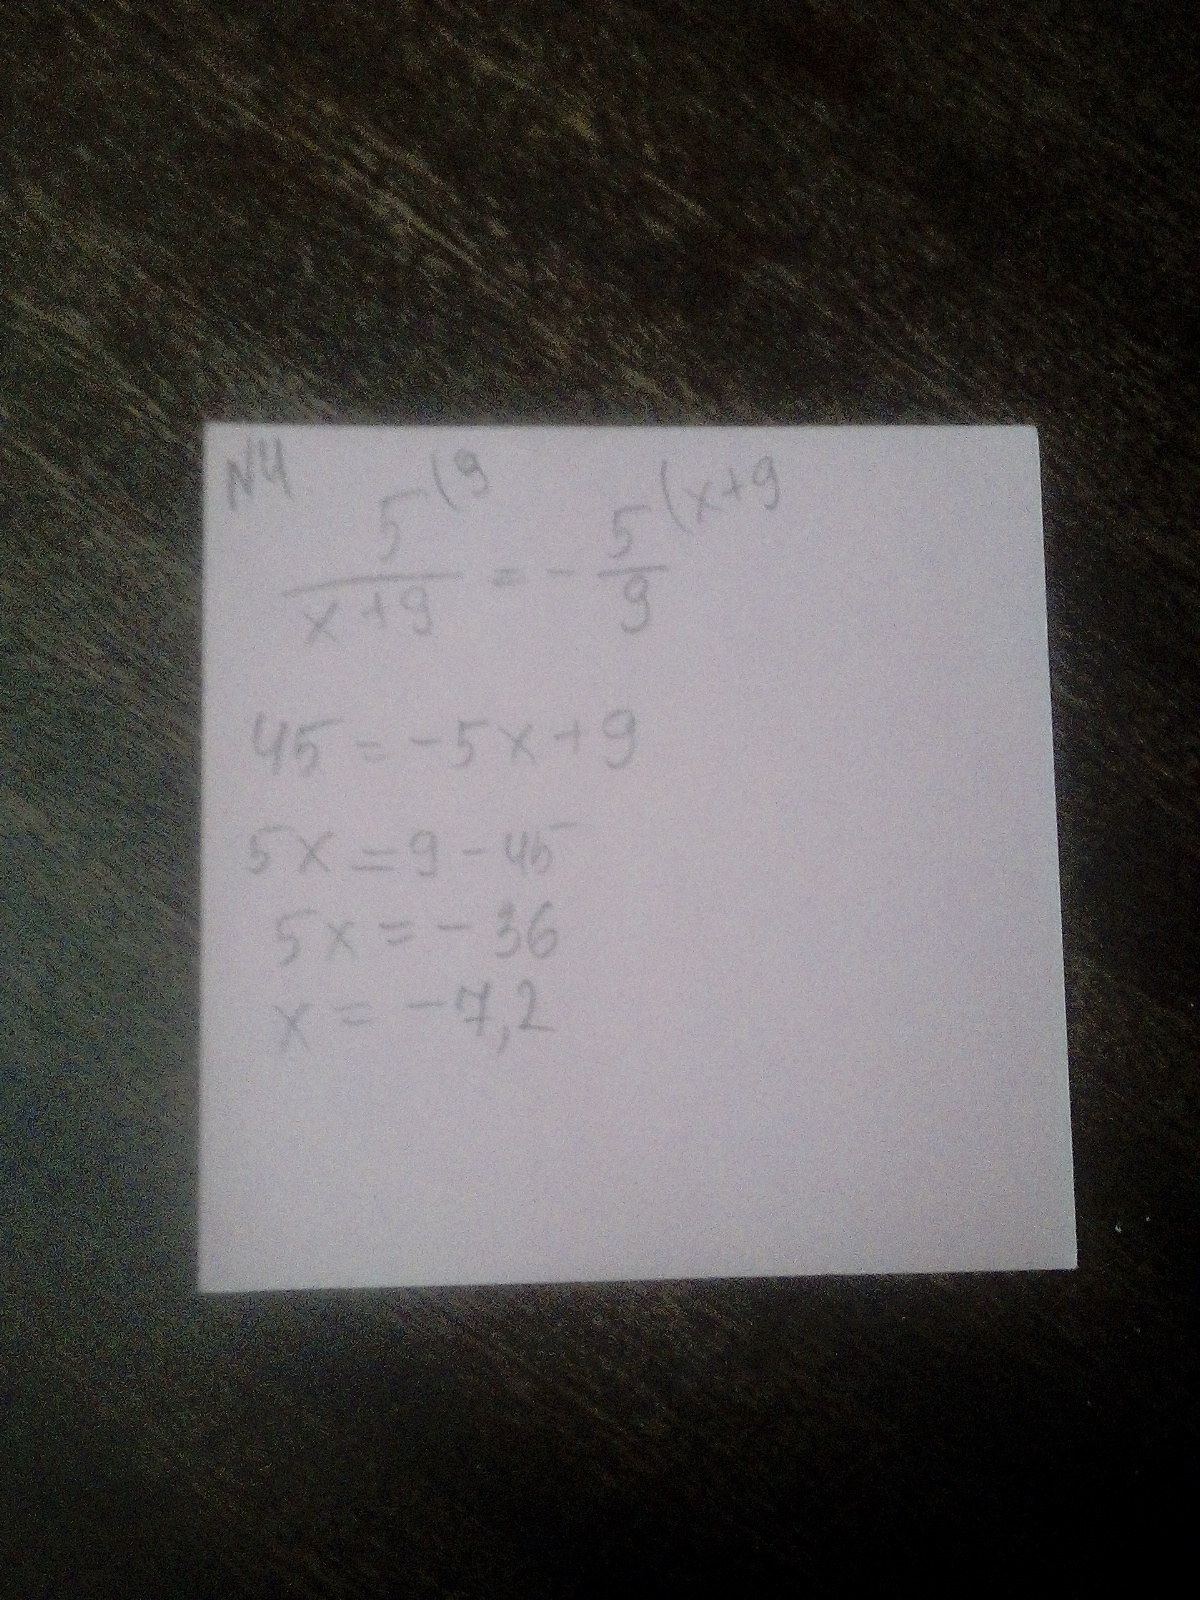 №4
5(9 / x+9 = - 5(x+9 / 9
45 = -5x+9
5x = 9 - 45
5x = - 36
x = -7,2